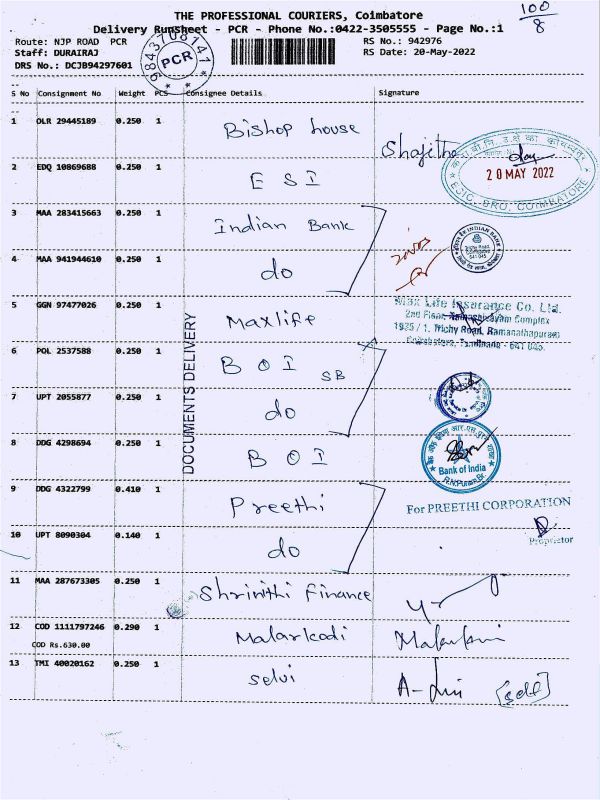 THE PROFESSIONAL COURIERS, Coimbatore
100
8
Delivery Runsheet - PCR - Phone No.:0422-3505555 - Page No.:1
Route: NJP ROAD PCR
RS No.: 942976
Staff: DURAIRAJ
RS Date: 20-May-2022
DRS No.: DCJB94297601
9843708141
PCR
S No Consignment No Weight PCS Consignee Details Signature
1 OLR 29445189 0.250 1 Bishop house
Shajitha
2 EDQ 10869688 0.250 1 ESI
20 MAY 2022
ECIC, BRO, COIMBATORE
3 MAA 283415663 0.250 1 Indian Bank
INDIAN BANK
4 MAA 941944610 0.250 1 do
5 GGN 97477026 0.250 1 Maxlife
Max Life Insurance Co. Ltd.
2nd Floor, Complex
1935 / 1, Trichy Road, Ramanathapuram
Coimbatore, Tamilnadu - 641 045.
DOCUMENTS DELIVERY
6 POL 2537588 0.250 1 BOI SB
7 UPT 2055877 0.250 1 do
8 DDG 4298694 0.250 1 BOI
Bank of India
R.N.Puram Br.
9 DDG 4322799 0.410 1 Preethi
For PREETHI CORPORATION
10 UPT 8090304 0.140 1 do
Proprietor
11 MAA 287673305 0.250 1 Shrinithi Finance
12 COD 1111797246 0.290 1 Malarkodi
COD Rs.630.00
13 TMI 40020162 0.250 1 selvi
[self]